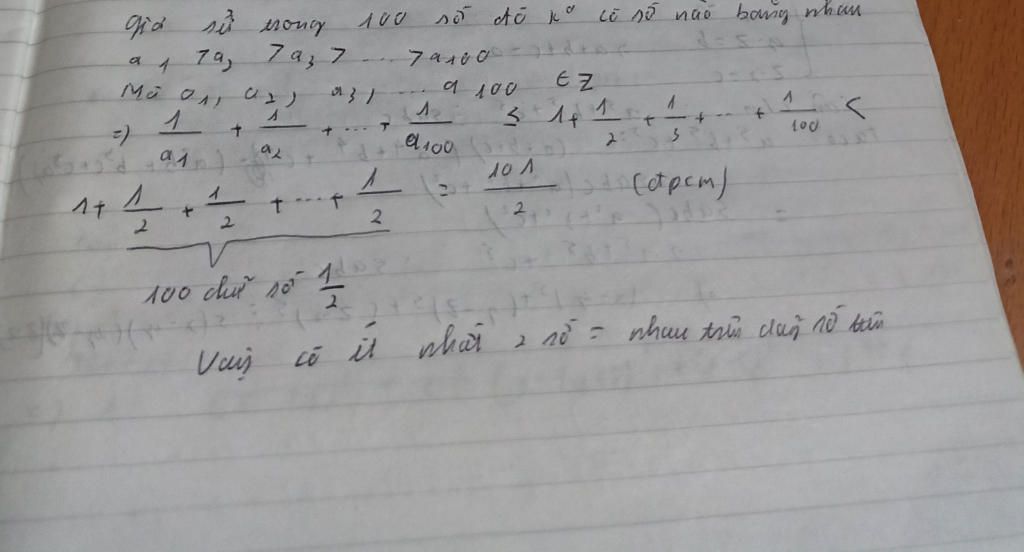 giả sử trong 100 số đó k⁰ có số nào bằng nhau
a1 > a2 > a3 > ... > a100
Mà a1, a2, a3, ... a100 ∈ Z
=> 1/a1 + 1/a2 + ... + 1/a100 ≤ 1 + 1/2 + 1/3 + ... + 1/100 <
1 + 1/2 + 1/2 + ... + 1/2 = 101/2 (đpcm)
100 chữ số 1/2
Vậy có ít nhất 2 số = nhau trên